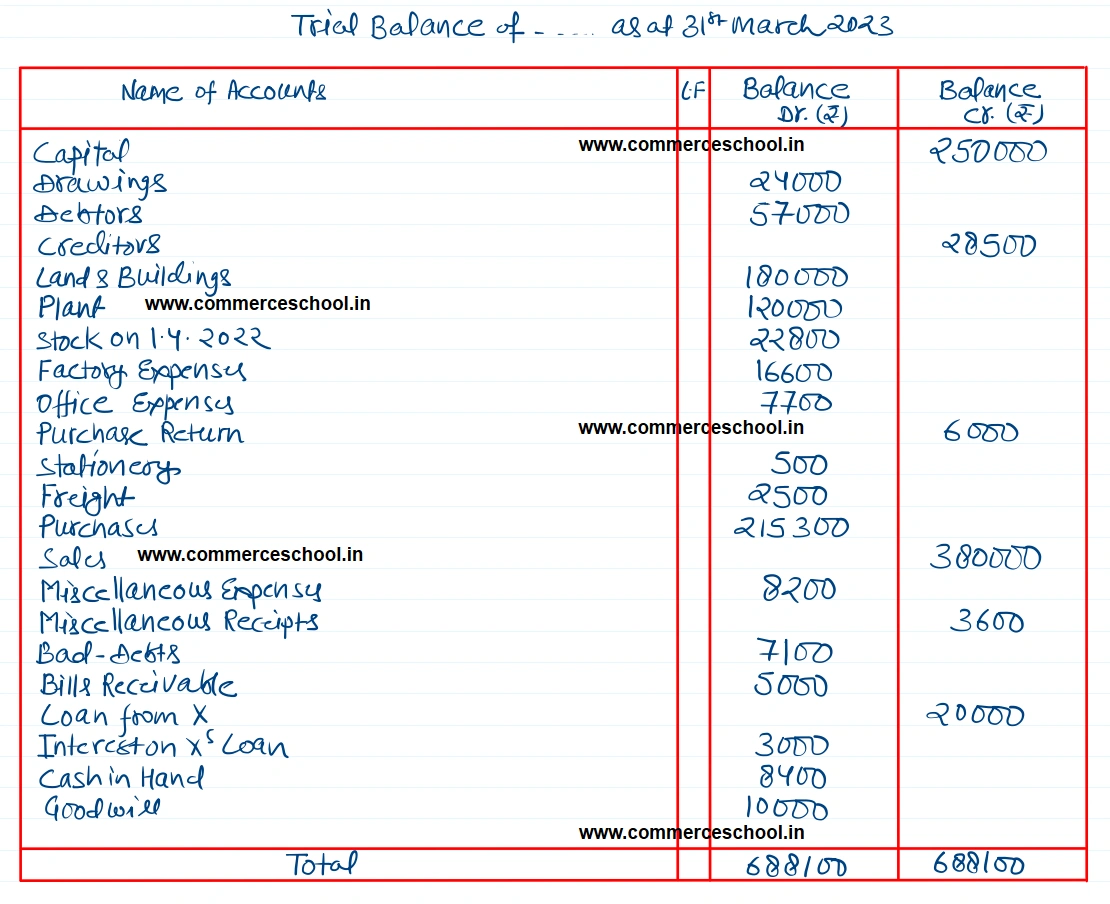 Trial Balance of - ..... as at 31st March 2023
Name of Accounts L.F Balance Dr. (₹) Balance Cr. (₹)
www.commerceschool.in
Capital 250000
Drawings 24000
Debtors 57000
Creditors 28500
Land & Buildings 180000
Plant www.commerceschool.in 120000
Stock on 1.4.2022 22800
Factory Expenses 16600
Office Expenses 7700
Purchase Return www.commerceschool.in 6000
Stationery 500
Freight 2500
Purchases 215300
Sales www.commerceschool.in 380000
Miscellaneous Expenses 8200
Miscellaneous Receipts 3600
Bad-Debts 7100
Bills Receivable 5000
Loan from X 20000
Interest on Xs Loan 3000
Cash in Hand 8400
Goodwill 10000
www.commerceschool.in
Total 688100 688100